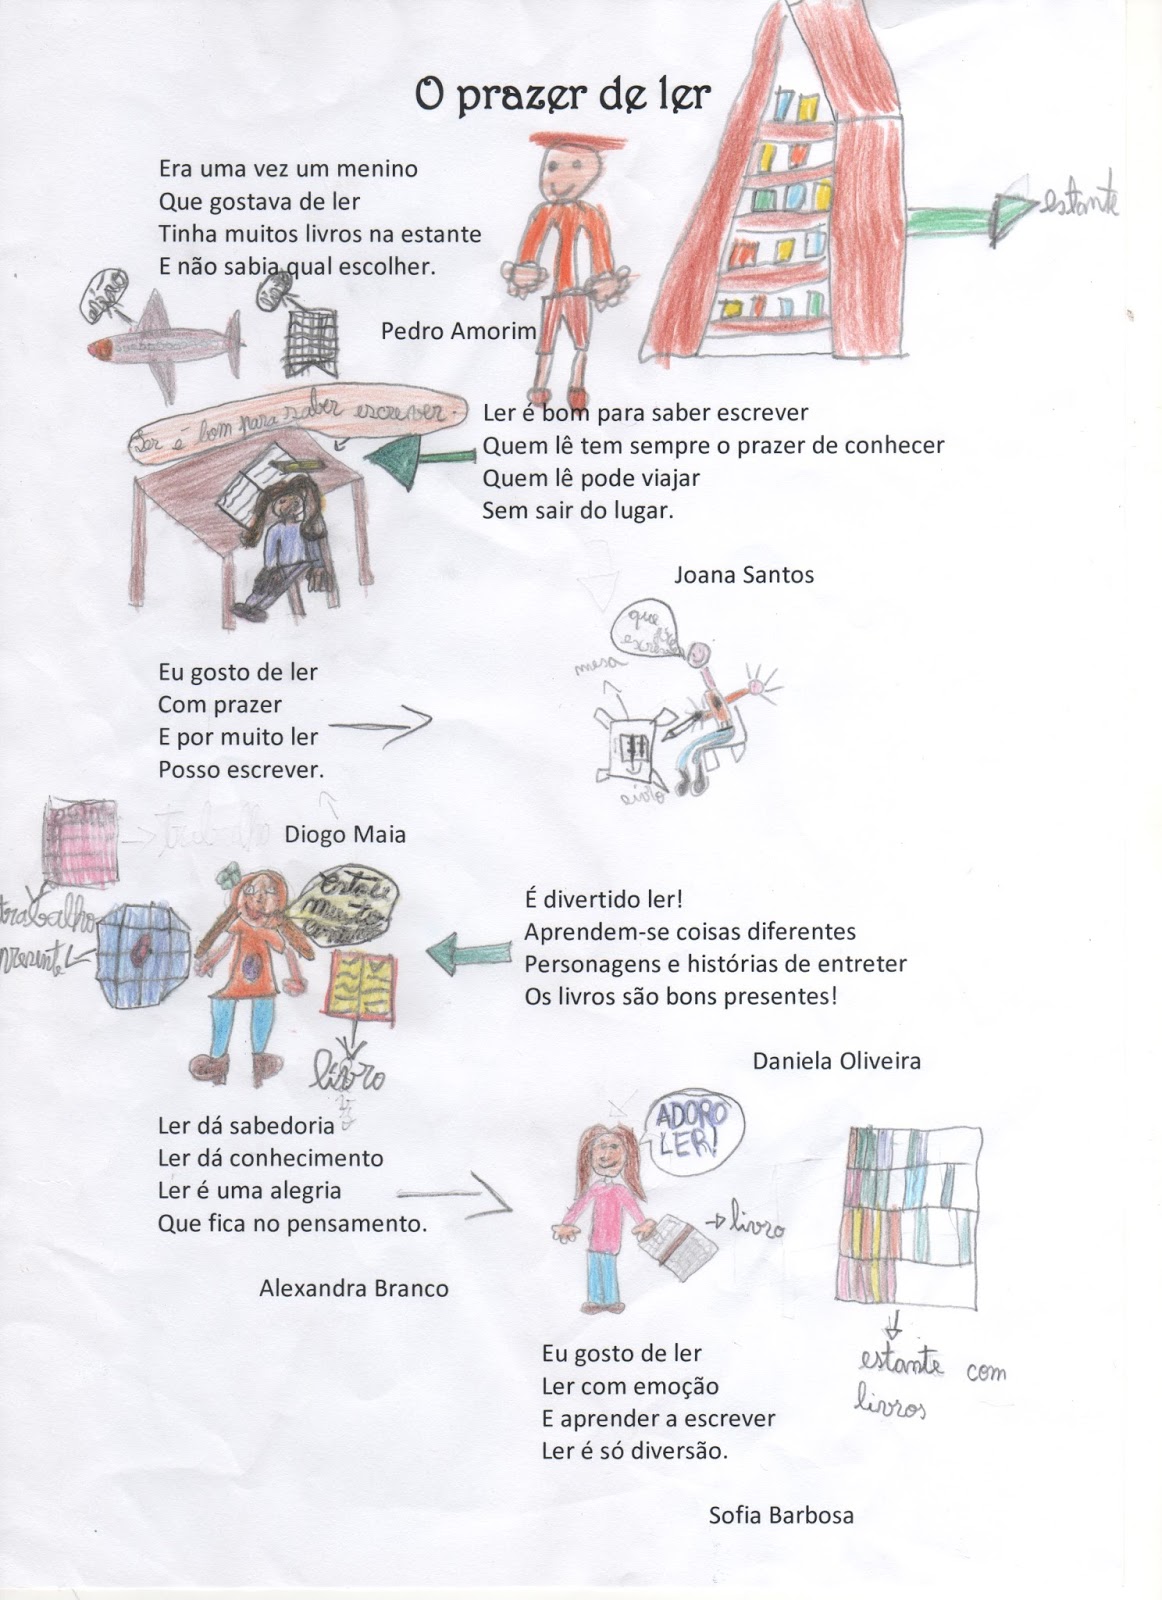 O prazer de ler
Era uma vez um menino
Que gostava de ler
Tinha muitos livros na estante
E não sabia qual escolher.
Pedro Amorim
estante
Ler é bom para saber escrever.
Ler é bom para saber escrever
Quem lê tem sempre o prazer de conhecer
Quem lê pode viajar
Sem sair do lugar.
Joana Santos
que
mesa
Eu gosto de ler
Com prazer
E por muito ler
Posso escrever.
Diogo Maia
trabalho
trabalho
presente
livro
É divertido ler!
Aprendem-se coisas diferentes
Personagens e histórias de entreter
Os livros são bons presentes!
Daniela Oliveira
Ler dá sabedoria
Ler dá conhecimento
Ler é uma alegria
Que fica no pensamento.
Alexandra Branco
ADORO
LER!
livro
estante com
livros
Eu gosto de ler
Ler com emoção
E aprender a escrever
Ler é só diversão.
Sofia Barbosa